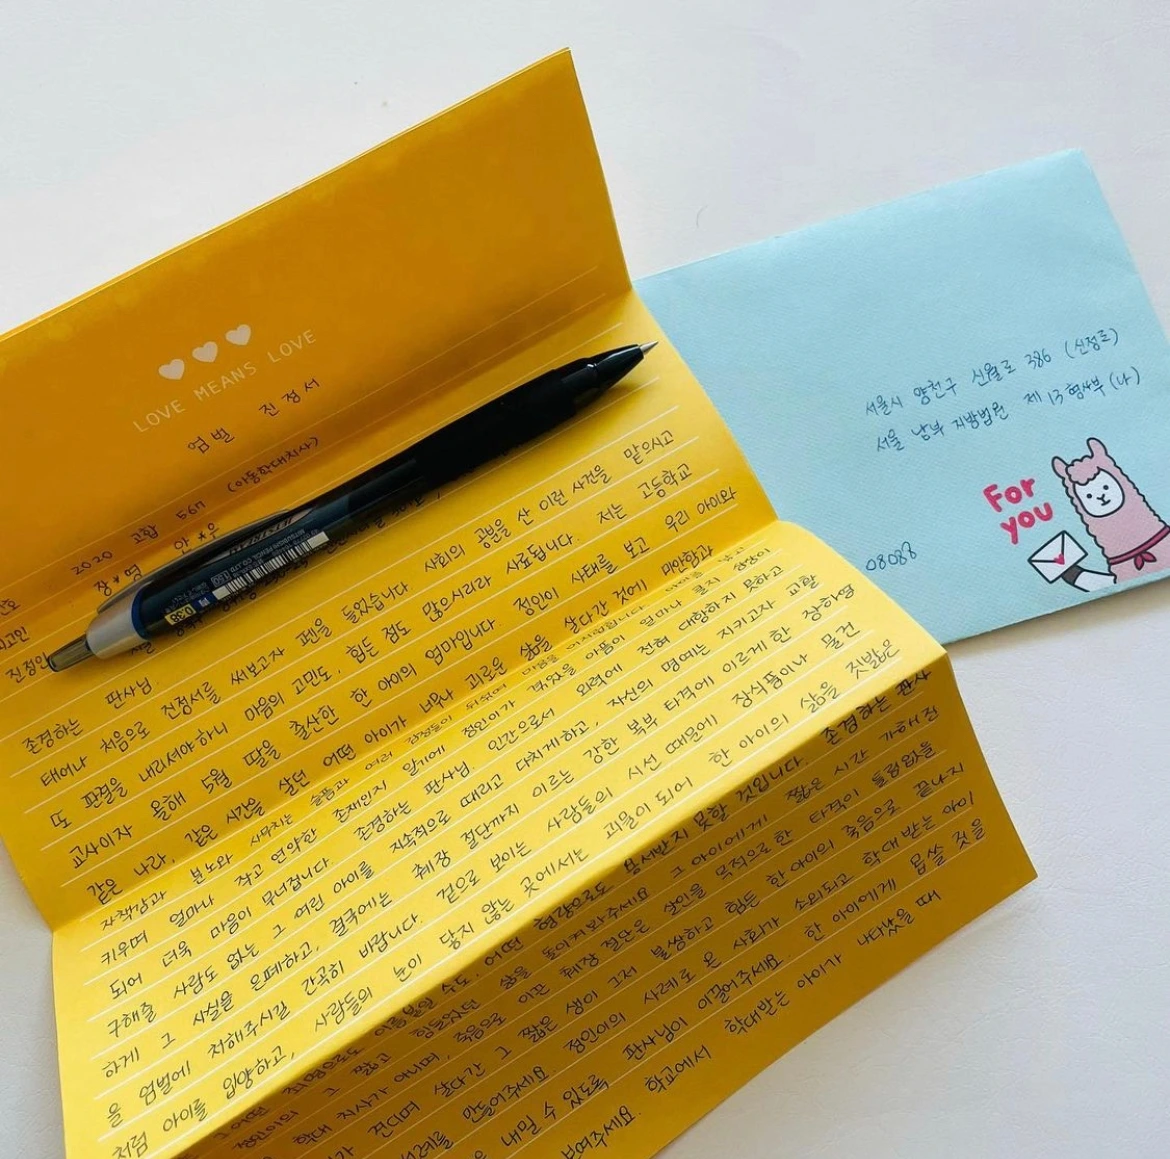 LOVE MEANS LOVE
엄벌 진정서
2020 고합 567 (아동학대치사)
장*영 안*우
존경하는 판사님
태어나 처음으로 진정서를 써보고자 펜을 들었습니다 사회의 공분을 산 이런 사건을 맡으시고
또 판결을 내리셔야하니 마음의 고민도, 힘든 점도 많으시리라 사료됩니다. 저는 고등학교
교사이자 올해 5월 딸을 출산한 한 아이의 엄마입니다. 정인이 사태를 보고 우리 아이와
같은 나라, 같은 시간을 살던 어떤 아이가 너무나 괴로운 삶을 살다간 것에 미안함과
자책감과 분노와 사무치는 슬픔과 여러 감정들이 뒤섞여
키우며 얼마나 작고 연약한 존재인지 알기에 정인이가 겪었을 아픔이 얼마나 클지 상상이
되어 더욱 마음이 무너집니다. 존경하는 판사님 인간으로서 외력에 전혀 대항하지 못하고
구해줄 사람도 없는 그 어린 아이를 지속적으로 때리고 다치게하고, 자신의 명예는 지키고자 교활
하게 그 사실을 은폐하고, 결국에는 췌장 절단까지 이르는 강한 복부 타격에 이르게 한 장하영
을 엄벌에 처해주시길 간곡히 바랍니다. 겉으로 보이는 사람들의 시선 때문에 장식품이나 물건
처럼 아이를 입양하고, 사람들의 눈이 닿지 않는 곳에서는 괴물이 되어 한 아이의 삶을 짓밟은
그 어떤 죄명으로도 어떤 형량으로도 용서받지 못할 것입니다. 존경하는 판사
정인이의 그 짧고 힘들었던 삶을 돌이켜봐주세요 그 아이에게 짧은 시간 가해진
학대 치사가 아니며, 죽음으로 이끈 췌장 절단은 살인을 목적으로한 타격이 틀림없음
견디며 살다간 그 짧은 생이 그저 불쌍하고 힘든 한 아이의 죽음으로 끝나지
만들어주세요. 정인이의 사례로 온 사회가 소외되고 학대받는 아이
내밀 수 있도록 판사님이 이끌어주세요. 한 아이에게 몹쓸 짓을
보여주세요. 학교에서 학대받는 아이가 나타났을 때
서울시 양천구 신월로 386 (신정동)
서울 남부 지방법원 제 13 형사부 (나)
For
you
08088